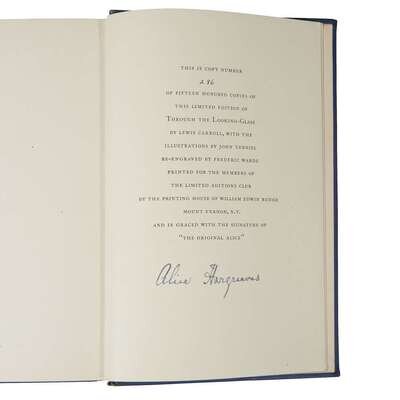 THIS IS COPY NUMBER
OF FIFTEEN HUNDRED COPIES OF
THIS LIMITED EDITION OF
THROUGH THE LOOKING-GLASS
BY LEWIS CARROLL, WITH THE
ILLUSTRATIONS BY JOHN TENNIEL
RE-ENGRAVED BY FREDERIC WARDE
PRINTED FOR THE MEMBERS OF
THE LIMITED EDITIONS CLUB
BY THE PRINTING HOUSE OF WILLIAM EDWIN RUDGE
MOUNT VERNON, N.Y.
AND IS GRACED WITH THE SIGNATURE OF
"THE ORIGINAL ALICE"
Alice Hargreaves